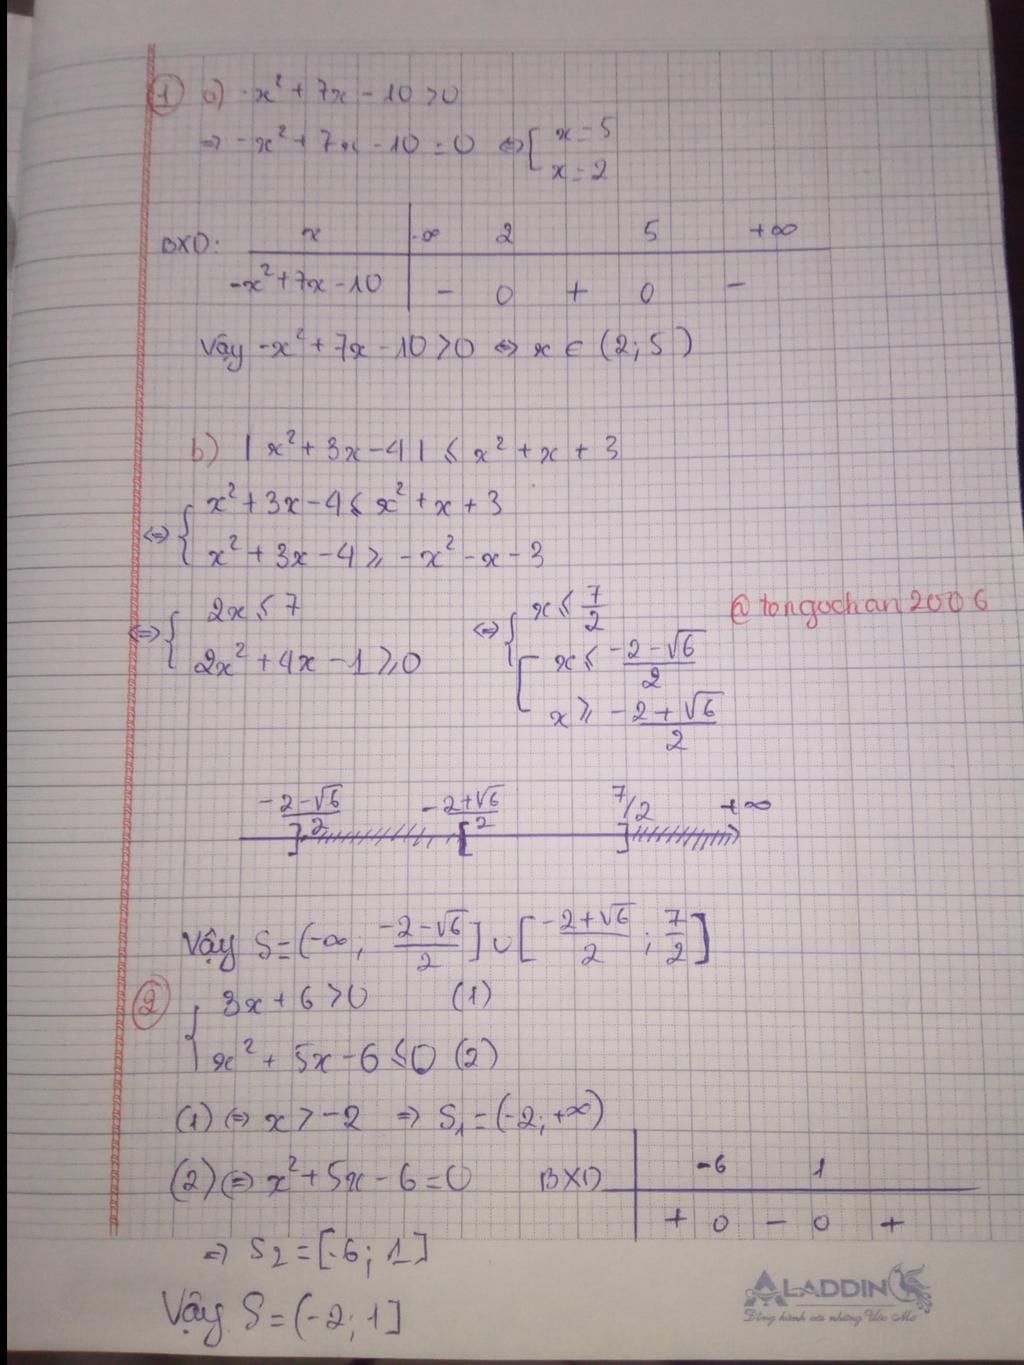 ① a) -x² + 7x - 10 > 0
⇒ -x² + 7x - 10 = 0 ⇔ [ x = 5
x = 2
BXD: x | -∞ 2 5 +∞
-x² + 7x - 10 | - 0 + 0 -
Vậy -x² + 7x - 10 > 0 ⇔ x ∈ (2; 5)
b) | x² + 3x - 4 | ≤ x² + x + 3
⇔ { x² + 3x - 4 ≤ x² + x + 3
x² + 3x - 4 ≥ -x² - x - 3
⇔ { 2x ≤ 7
2x² + 4x - 1 ≥ 0
⇔ { x ≤ 7/2
[ x ≤ (-2 - √6)/2
x ≥ (-2 + √6)/2
@tongochan2006
(-2-√6)/2 (-2+√6)/2 7/2 +∞
] [ ]
Vậy S = (-∞; (-2-√6)/2] ∪ [(-2+√6)/2; 7/2]
② { 3x + 6 > 0 (1)
x² + 5x - 6 ≤ 0 (2)
(1) ⇔ x > -2 ⇒ S₁ = (-2; +∞)
(2) ⇔ x² + 5x - 6 = 0 BXD | -6 1
| + 0 - 0 +
⇒ S₂ = [-6; 1]
Vậy S = (-2; 1]
ALADDIN
Đồng hành với những Ước Mơ